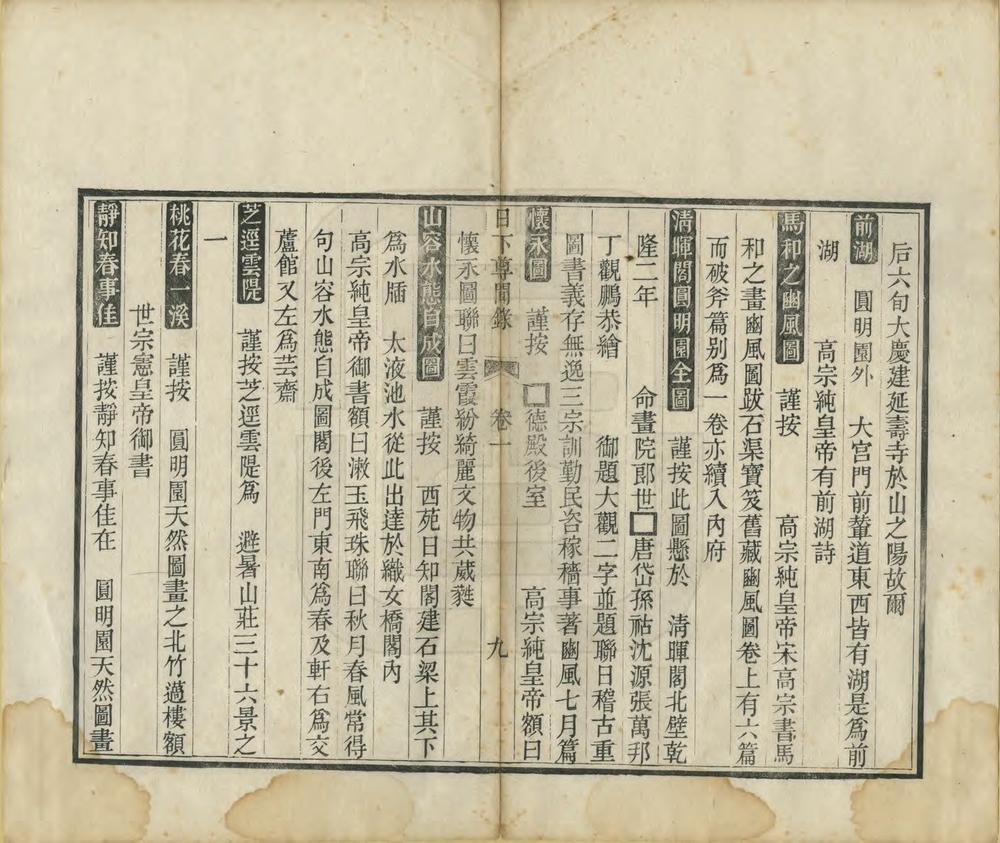 后六旬大慶建延壽寺於山之陽故爾
前湖 圓明園外 大宮門前輦道東西皆有湖是爲前
湖 高宗純皇帝有前湖詩
馬和之豳風圖 謹按 高宗純皇帝宋高宗書馬
和之畫豳風圖跋石渠寶笈舊藏豳風圖卷上有六篇
而破斧篇别爲一卷亦續入內府
清暉閣圓明園全圖 謹按此圖懸於 清暉閣北壁乾
隆二年 命畫院郎世□唐岱孫祜沈源張萬邦
丁觀鵬恭繪 御題大觀二字並題聯曰稽古重
圖書義存無逸三宗訓勤民咨稼穡事著豳風七月篇
懷永圖 謹按 □德殿後室 高宗純皇帝額曰
日下尊聞錄 卷一 九
懷永圖聯曰雲霞紛綺麗文物共葳蕤
山容水態自成圖 謹按 西苑日知閣建石梁上其下
爲水牐 太液池水從此出達於織女橋閣內
高宗純皇帝御書額曰漱玉飛珠聯曰秋月春風常得
句山容水態自成圖閣後左門東南爲春及軒右爲交
蘆館又左爲芸齋
芝逕雲隄 謹按芝逕雲隄爲 避暑山莊三十六景之
一
桃花春一溪 謹按 圓明園天然圖畫之北竹薖樓額
世宗憲皇帝御書
靜知春事佳 謹按靜知春事佳在 圓明園天然圖畫